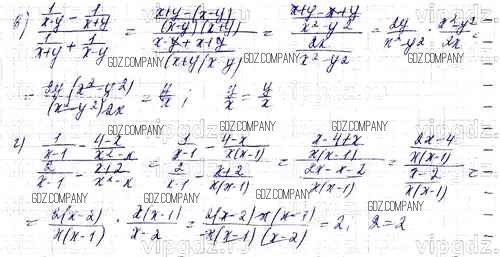 в) (1/(x-y) - 1/(x+y)) / (1/(x+y) + 1/(x-y)) = ((x+y-(x-y))/((x-y)(x+y))) / ((x-y+x+y)/((x+y)(x-y))) = ((x+y-x+y)/(x²-y²)) / (2x/(x²-y²)) = 2y/(x²-y²) · (x²-y²)/2x =
= 2y(x²-y²)/((x²-y²)2x) = y/x ; y/x = y/x
г) (1/(x-1) - (4-x)/(x²-x)) / (2/(x-1) - (x+2)/(x²-x)) = (1/(x-1) - (4-x)/(x(x-1))) / (2/(x-1) - (x+2)/(x(x-1))) = ((x-4+x)/(x(x-1))) / ((2x-x-2)/(x(x-1))) = ((2x-4)/(x(x-1))) / ((x-2)/(x(x-1))) =
= 2(x-2)/(x(x-1)) · x(x-1)/(x-2) = 2(x-2)x(x-1)/(x(x-1)(x-2)) = 2; 2=2
GDZ.COMPANY
vipgdz